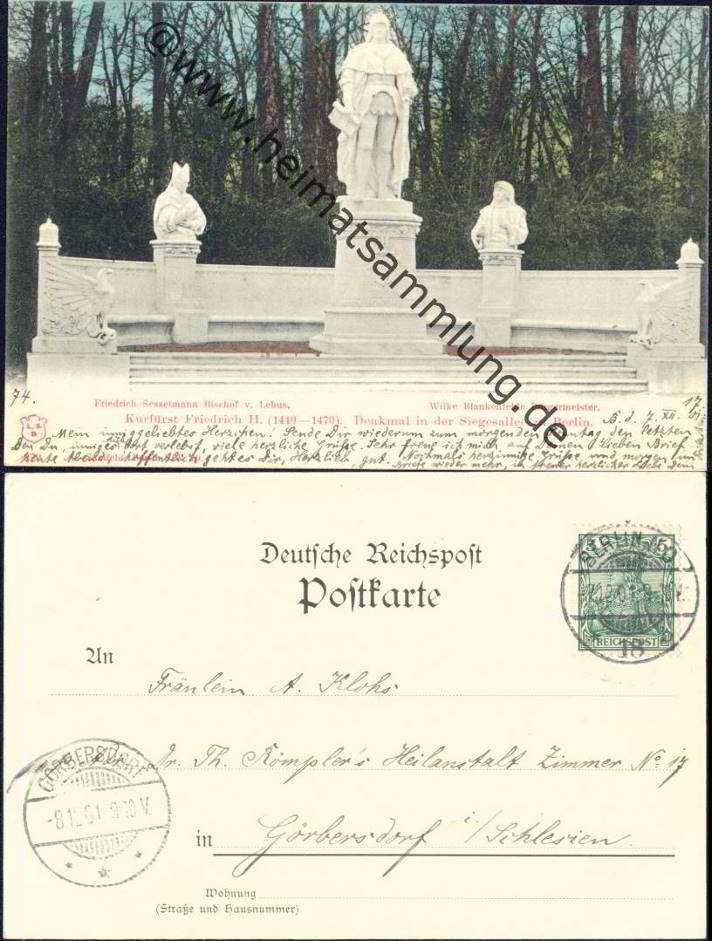 ©www.heimatsammlung.de
Friedrich Sesselmann Bischof v. Lebus.
Wilke Blankenfelde Bürgermeister.
Kurfürst Friedrich II. (1440—1470). Denkmal in der Siegesallee Berlin.
74.
B. d. 7. XII.
Mein inniggeliebtes Herzchen! Sende Dir wiederum zum morgenden Sonntag den letzten
viele herzliche Grüße. Sehr freue ich mich auf Deinen lieben Brief
heute Abend, hoffentlich geht es Dir, Herzlieb, gut. Nochmals herzinnige Grüße und morgen
Briefe wieder mehr, in treuer herzlicher Liebe Dein
Deutsche Reichspost
Postkarte
BERLIN
REICHSPOST
An
Fräulein A. Klohs
Dr. Th. Römpler's Heilanstalt Zimmer No 17
GÖRBERSDORF
-8.12.01-9.10 V.
in Görbersdorf i/Schlesien.
Wohnung
(Straße und Hausnummer)